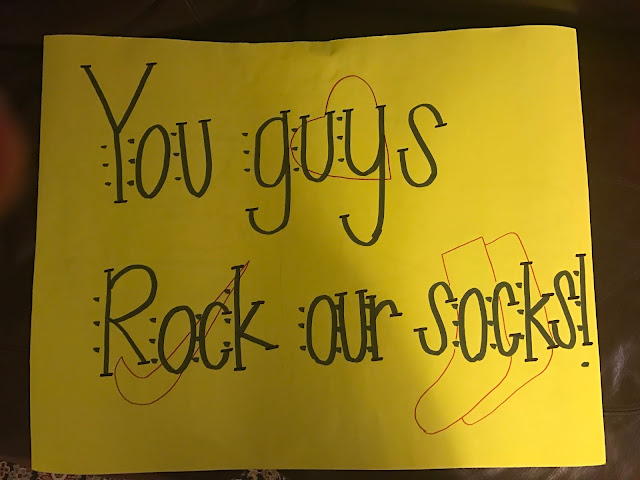 You guys
Rock our socks!